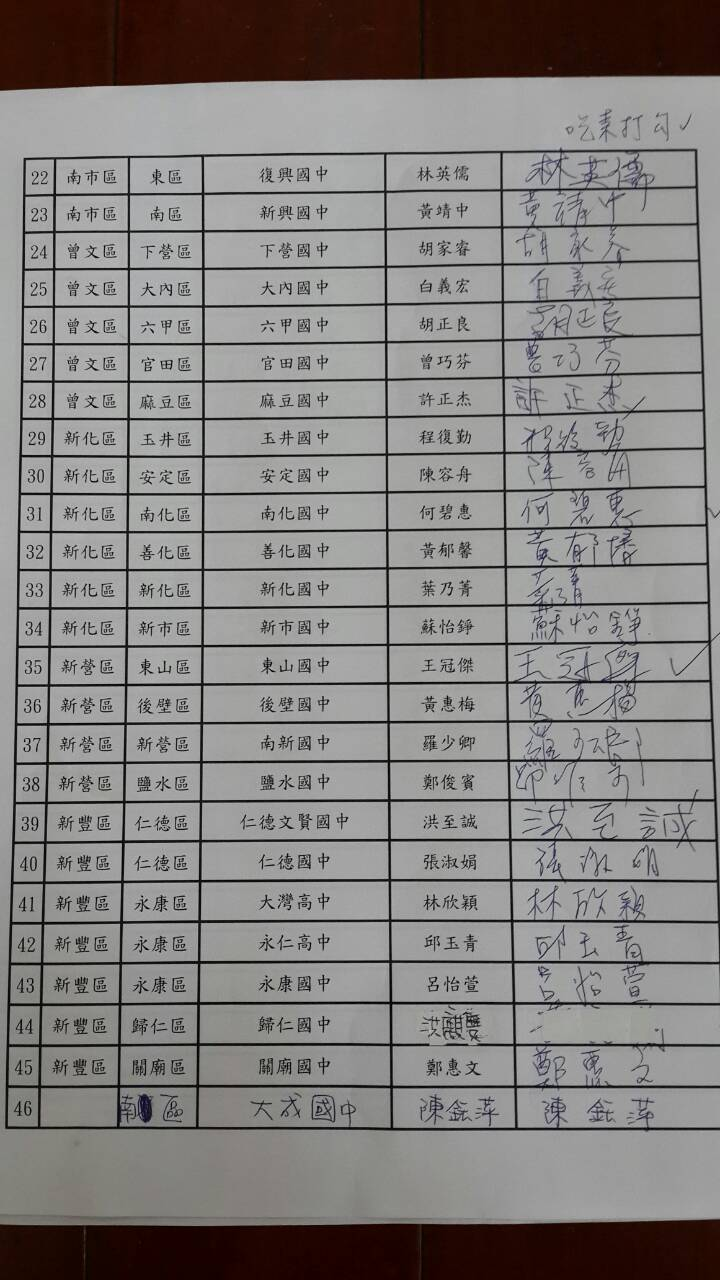 吃素打勾✓
22 南市區 東區 復興國中 林英儒 林英儒
23 南市區 南區 新興國中 黃靖中 黃靖中
24 曾文區 下營區 下營國中 胡家睿
25 曾文區 大內區 大內國中 白義宏 白義宏
26 曾文區 六甲區 六甲國中 胡正良 胡正良
27 曾文區 官田區 官田國中 曾巧芬 曾巧芬
28 曾文區 麻豆區 麻豆國中 許正杰 許正杰
29 新化區 玉井區 玉井國中 程復勤 ✓
30 新化區 安定區 安定國中 陳容舟 陳容舟
31 新化區 南化區 南化國中 何碧惠 何碧惠 ✓
32 新化區 善化區 善化國中 黃郁馨 黃郁馨
33 新化區 新化區 新化國中 葉乃菁
34 新化區 新市區 新市國中 蘇怡錚 蘇怡錚
35 新營區 東山區 東山國中 王冠傑 王冠傑 ✓
36 新營區 後壁區 後壁國中 黃惠梅 黃惠梅
37 新營區 新營區 南新國中 羅少卿
38 新營區 鹽水區 鹽水國中 鄭俊賓
39 新豐區 仁德區 仁德文賢國中 洪至誠 洪至誠 ✓
40 新豐區 仁德區 仁德國中 張淑娟 張淑娟
41 新豐區 永康區 大灣高中 林欣穎 林欣穎
42 新豐區 永康區 永仁高中 邱玉青 邱玉青
43 新豐區 永康區 永康國中 呂怡萱 呂怡萱
44 新豐區 歸仁區 歸仁國中 洪
45 新豐區 關廟區 關廟國中 鄭惠文 鄭惠文
46 南區 大成國中 陳鈺萍 陳鈺萍